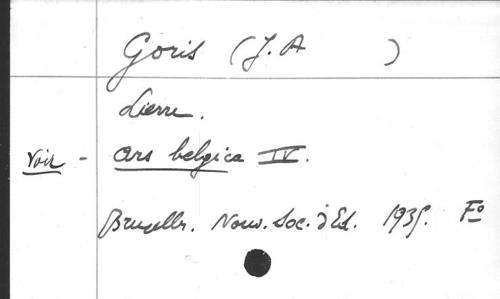 Goris (J. A )
Lierre.
Voir - Ars belgica IV.
Bruxelles. Nouv. Soc. d'Ed. 1935. Fo